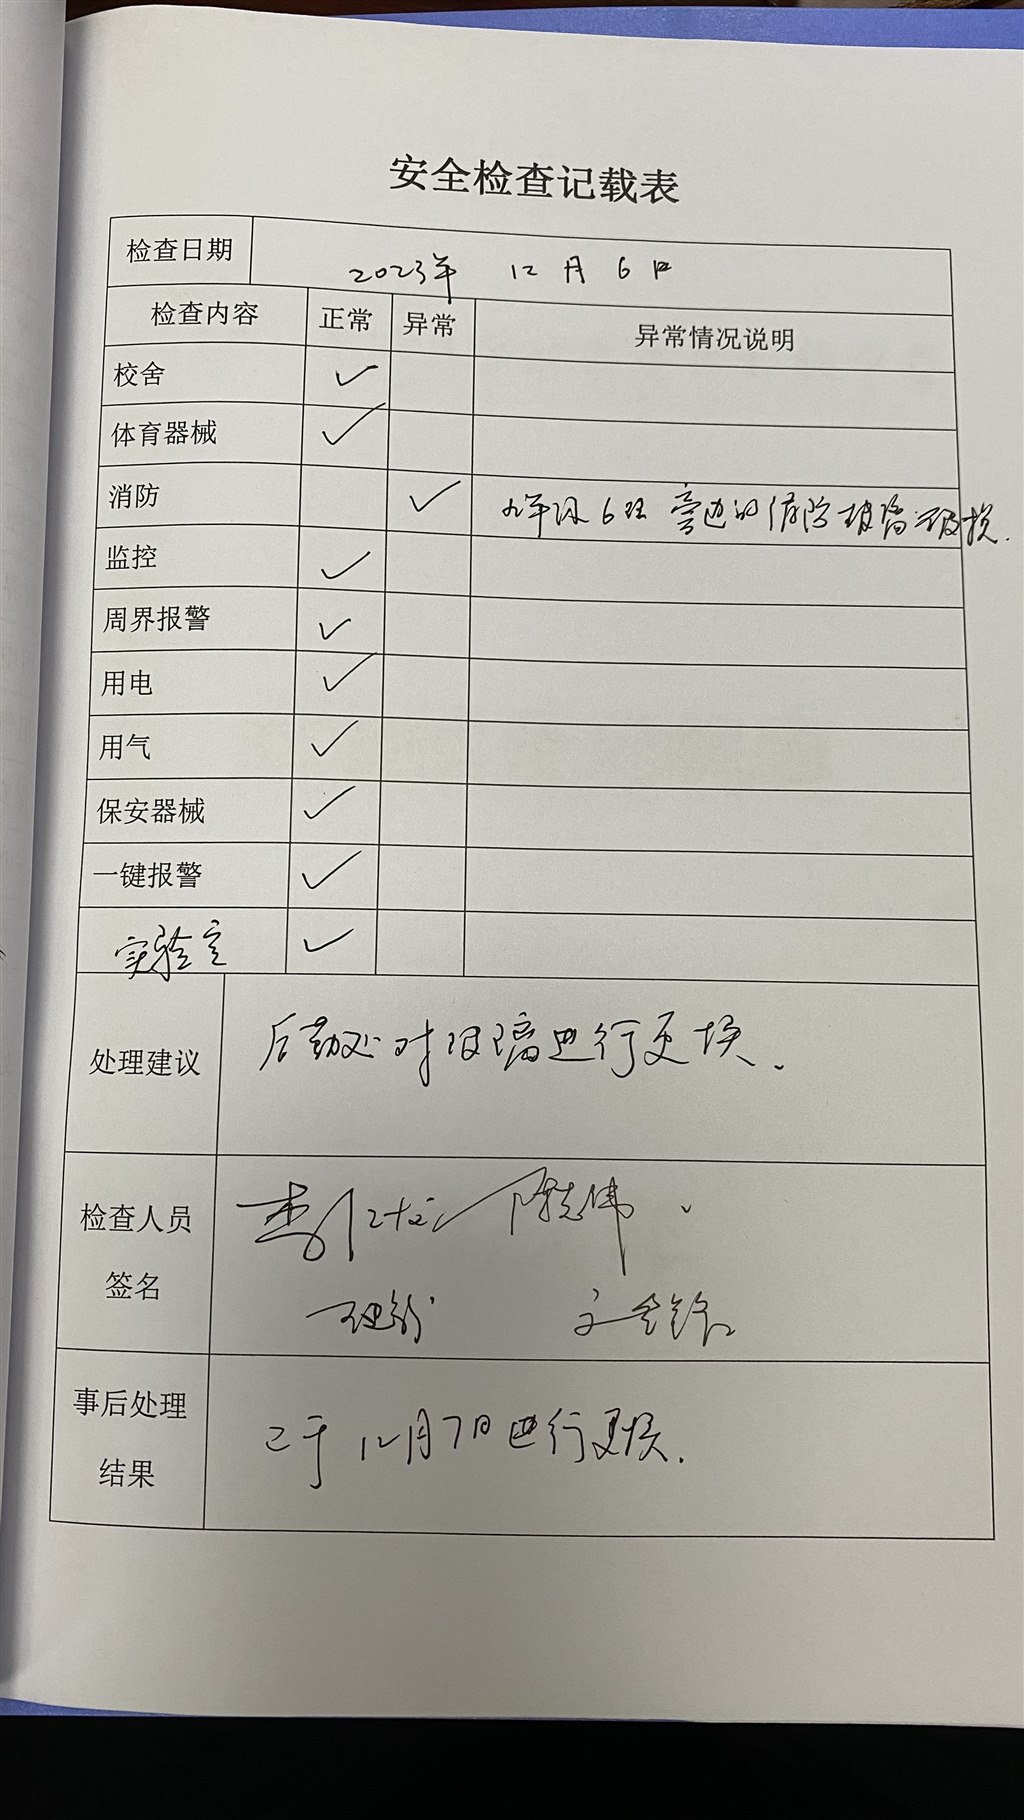 安全检查记载表
检查日期 2023年 12月6日
检查内容 正常 异常 异常情况说明
校舍 ✓
体育器械 ✓
消防 ✓ 九年级6班旁边的消防玻璃破损.
监控 ✓
周界报警 ✓
用电 ✓
用气 ✓
保安器械 ✓
一键报警 ✓
实验室 ✓
处理建议 后勤处对玻璃进行更换.
检查人员
签名
事后处理
结果
已于12月7日进行更换.